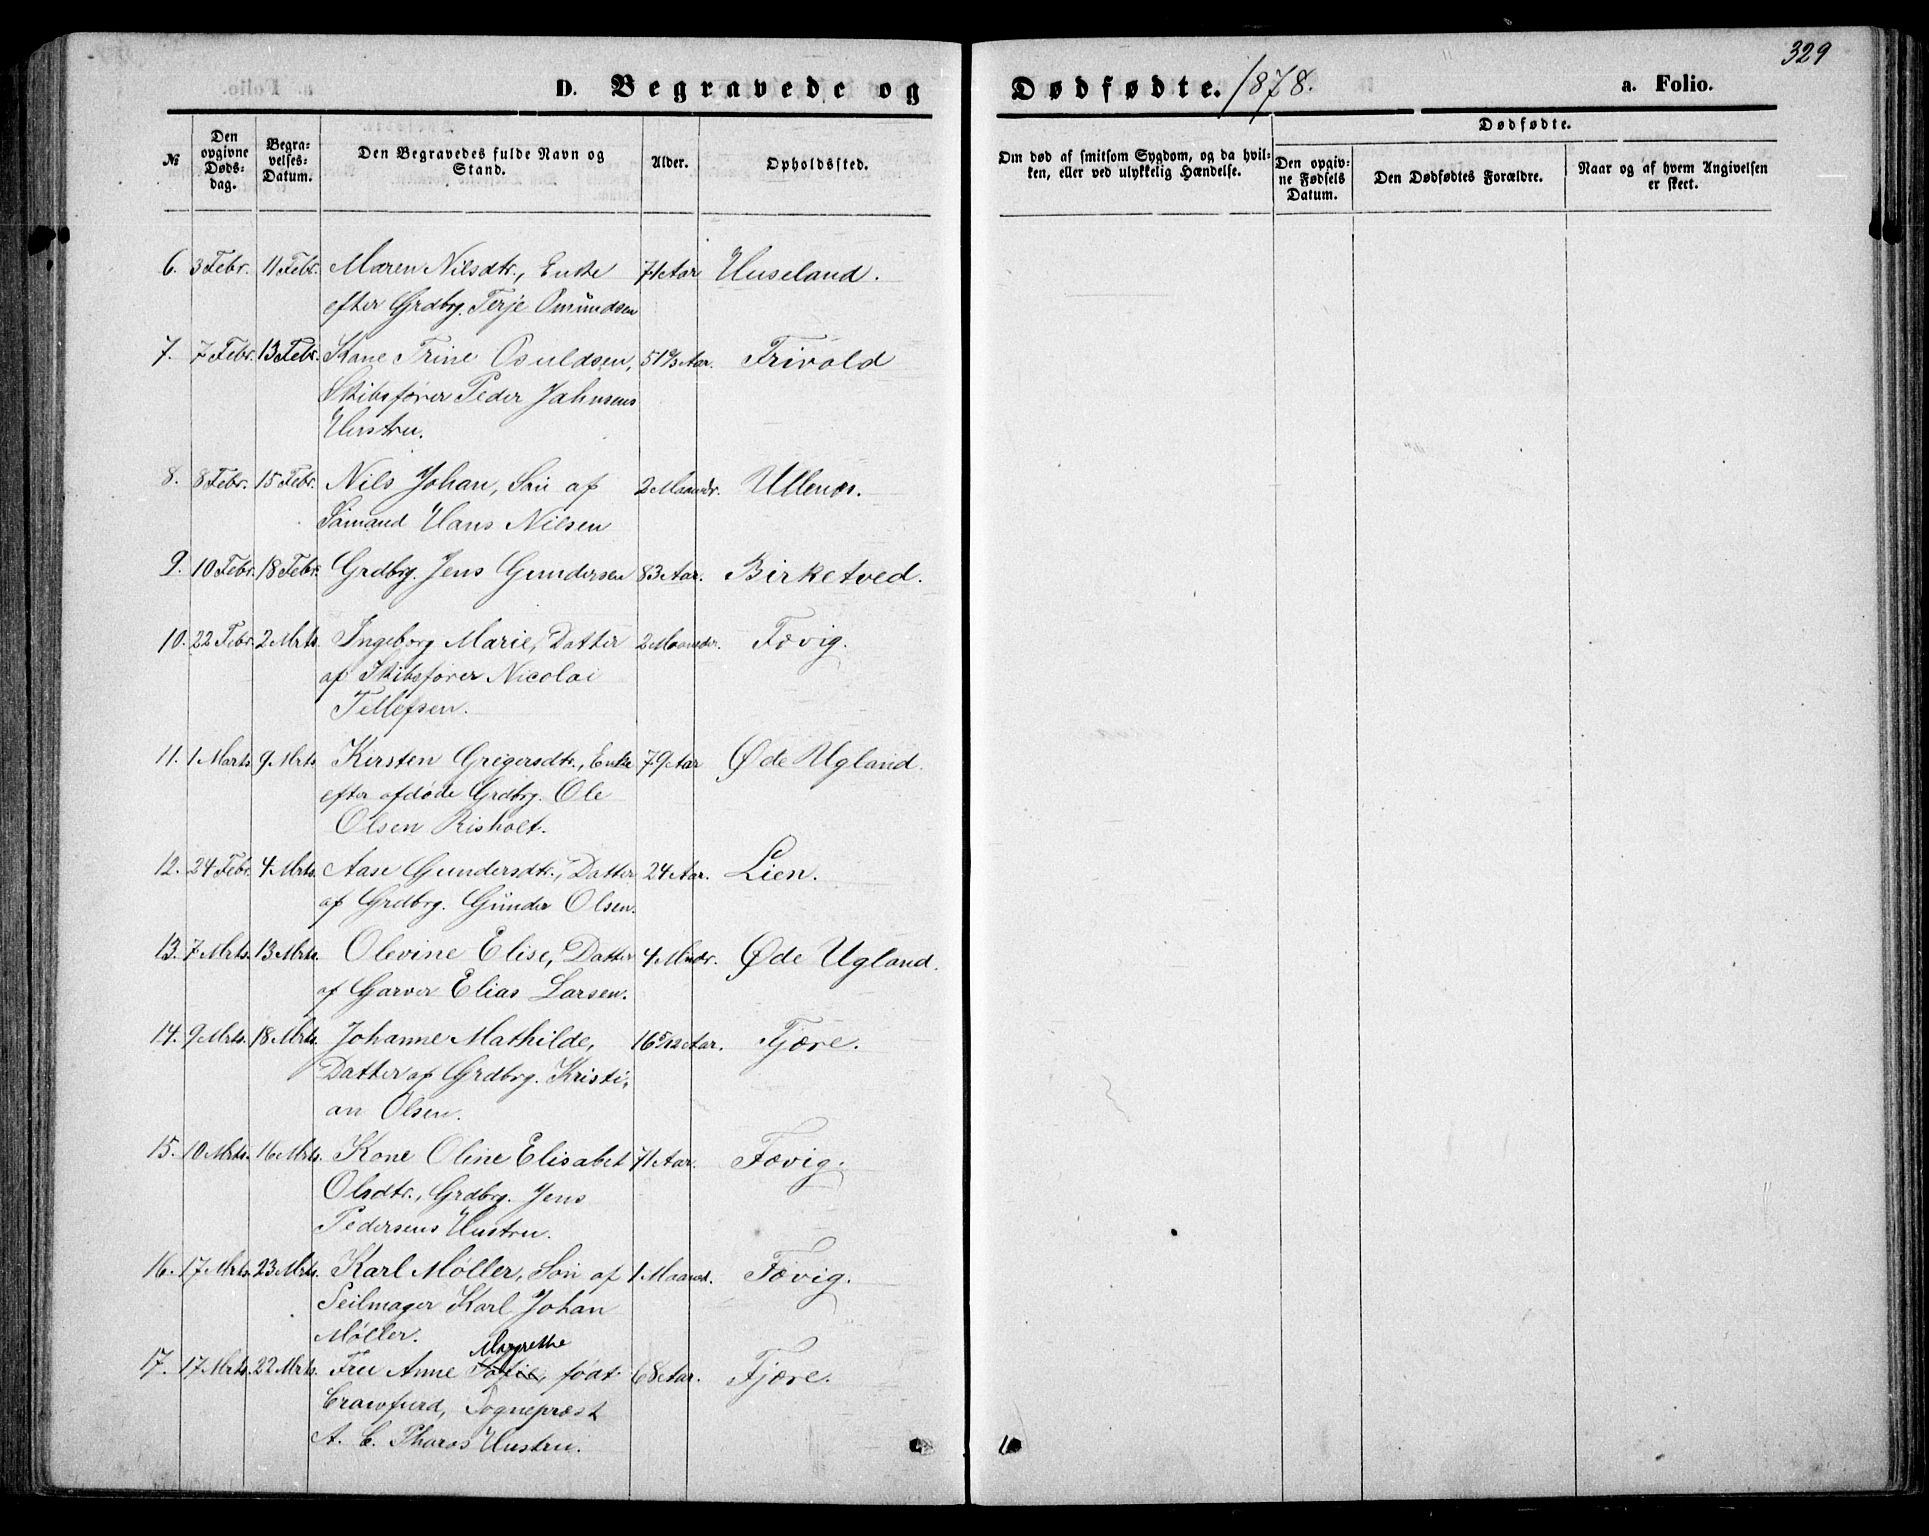 329
D. Begravede og Dødfødte. 1878. a. Folio.
№
Den opgivne Døds-dag.
Begra-velses-Datum.
Den Begravedes fulde Navn og Stand.
Alder.
Opholdssted.
Om død af smitsom Sygdom, og da hvil-ken, eller ved ulykkelig Hændelse.
Dødfødte.
Den opgiv-ne Fødsels Datum.
Den Dødfødtes Forældre.
Naar og af hvem Angivelsen er skeet.
6. 3 Febr. 11 Febr. Maren Nilsdtr., Enke 71 Aar Huseland.
efter Grdbrg. Terje Omundsen
7. 7 Febr. 13 Febr. Kone Trine Osuldsen, 51 Aar. Trivold
Skibsfører Peder Jahnsens
Hustru.
8. 8 Febr. 15 Febr. Nils Johan, Søn af 2 Maandr. Ullenæs.
Sømand Hans Nilsen
9. 10 Febr. 18 Febr. Grdbrg. Jens Gundersen 83 Aar. Birketved.
10. 22 Febr. 2 Mrts. Ingeborg Marie, Datter 2 Maander. Fævig.
af Skibsfører Nicolai
Tellefsen.
11. 1 Marts 9 Mrts. Kirsten Greigersdtr., Enke 79 Aar Øde Ugland.
efter afdøde Grdbrg. Ole
Olsen Risholt.
12. 24 Febr. 4 Mrts. Aase Gundersdtr., Datter 24 Aar. Lien.
af Grdbrg. Gunder Olsen.
13. 7 Mrts. 13 Mrts. Olevine Elise, Datter 4 Mndr. Øde Ugland.
af Garver Elias Larsen.
14. 9 Mrts. 18 Mrts. Johanne Mathilde, 16 5/12 Aar. Fjære.
Datter af Grdbrg. Kristi-
an Olsen.
15. 10 Mrts. 16 Mrts. Kone Oline Elisabet 71 Aar. Fævig.
Olsdtr., Grdbrg. Jens
Pedersens Hustru.
16. 17 Mrts. 23 Mrts. Karl Møller, Søn af 1 Maaned. Fævig.
Seilmager Karl Johan
Møller.
Margrethe
17. 17 Mrts. 22 Mrts. Fru Anne Sofie, født 68 Aar. Fjære.
Crawfurd, Sognepræst
A. C. Pharos Hustru.